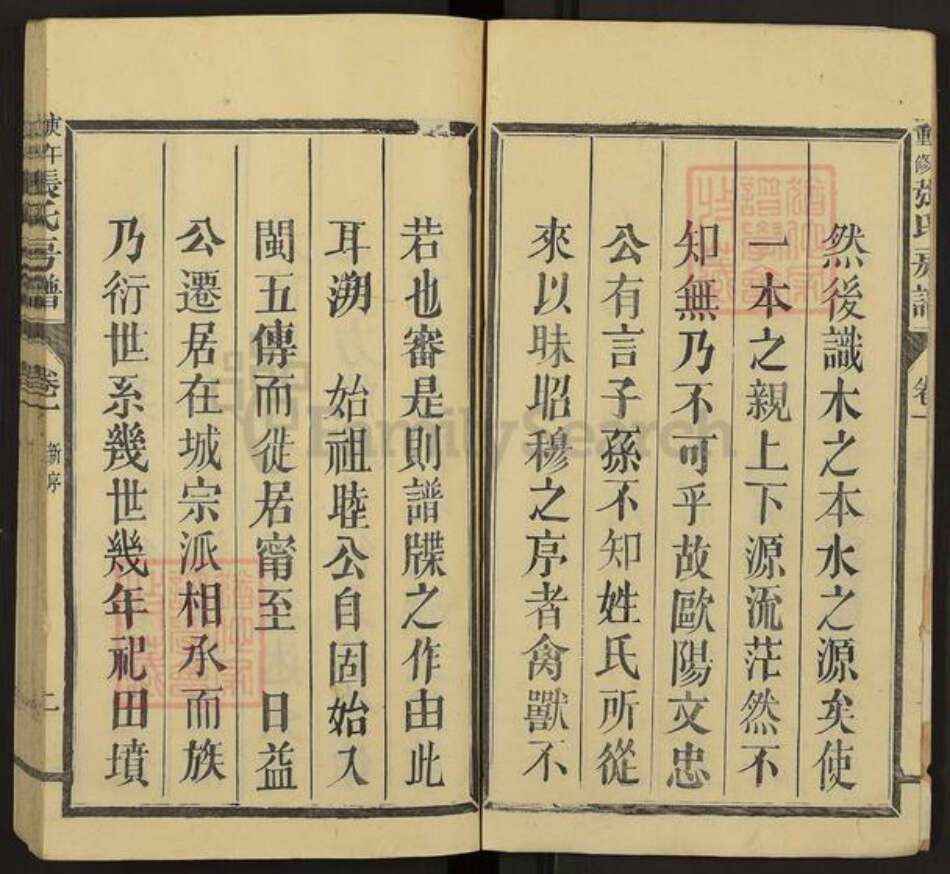 重修張氏房譜 卷一
然後識木之本水之源矣使
一本之親上下源流茫然不
知無乃不可乎故歐陽文忠
公有言子孫不知姓氏所從
來以昧昭穆之序者禽獸不
若也審是則譜牒之作由此
耳溯 始祖睦公自固始入
閩五傳而徙居甯至 日益
公遷居在城宗派相承而族
乃衍世系幾世幾年祀田墳
庚午張氏房譜 卷一 新序 二
FamilySearch